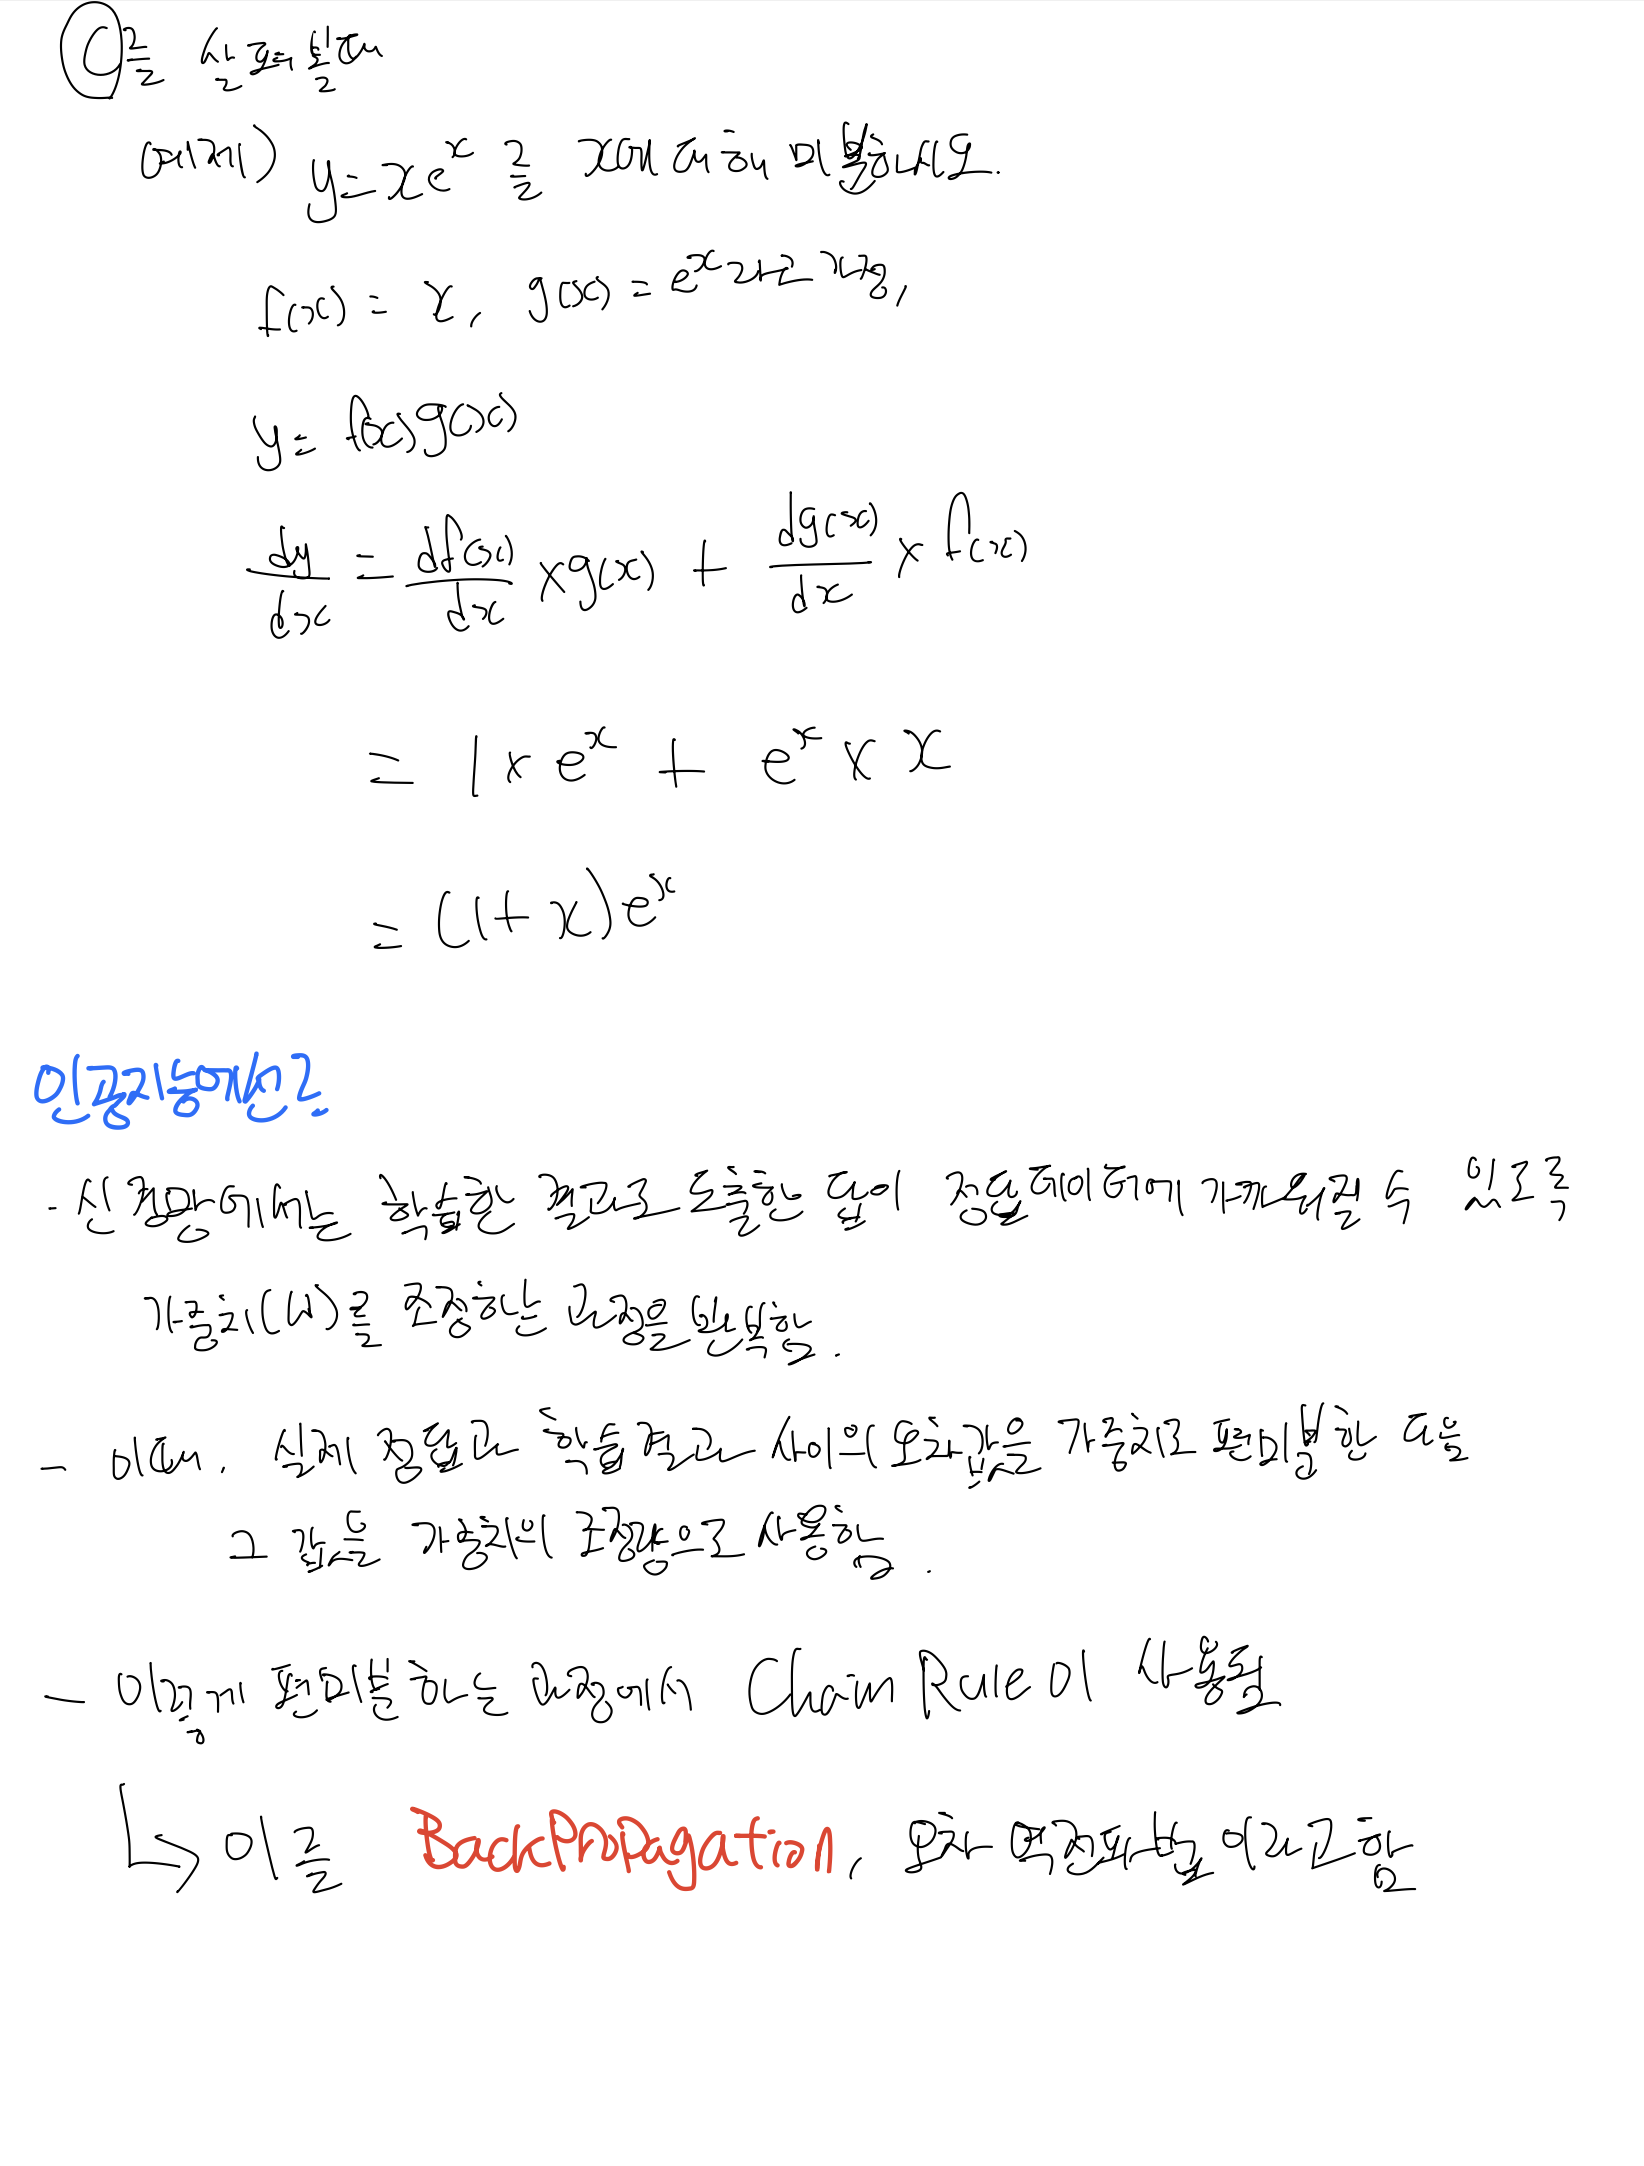 C를 살펴볼때
예제) y=xe^x 를 x에 대해 미분하시오.
f(x) = x, g(x) = e^x라고 가정,
y= f(x)g(x)
dy/dx = df(x)/dx × g(x) + dg(x)/dx × f(x)
= 1 × e^x + e^x × x
= (1+x)e^x
인공지능에선?
- 신경망에서는 학습한 결과로 도출한 답이 정답데이터에 가까워질 수 있도록
가중치(W)를 조정하는 과정을 반복함.
- 이때, 실제 정답과 학습결과 사이의 오차값을 가중치로 편미분한 다음
그 값들을 가중치의 조정량으로 사용함.
- 이렇게 편미분하는 과정에서 Chain Rule이 사용됨
↳ 이를 BackPropagation, 오차 역전파법 이라고 함